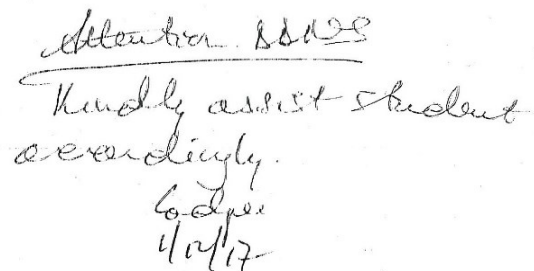 Attention SSNS
Kindly assist student
accordingly.
1/12/17